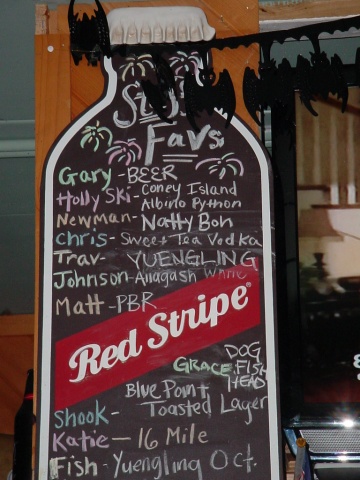 Favs
Gary - BEER
Holly Ski - Coney Island
Albino Python
Newman - Natty Boh
Chris - Sweet Tea Vodka
Trav - YUENGLING
Johnson - Allagash White
Matt - PBR
Red Stripe®
GRACE: DOG
FISH
HEAD
Shook - Blue Point
Toasted Lager
Katie - 16 Mile
Fish - Yuengling Oct.